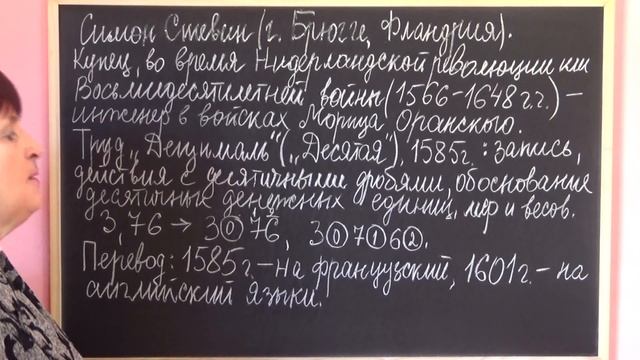 Симон Стевин (г. Брюгге, Фландрия).
Купец, во время Нидерландской революции или
Восьмидесятилетней войны (1566-1648 г.г.) –
инженер в войсках Морица Оранского.
Труд „Децималь" („Десятая"), 1585г.: запись,
действия с десятичными дробями, обоснование
десятичных денежных единиц, мер и весов.
3,76 → 3⓪7̇6̈, 3⓪7①6②.
Перевод: 1585г. – на французский, 1601г. – на
английский языки.